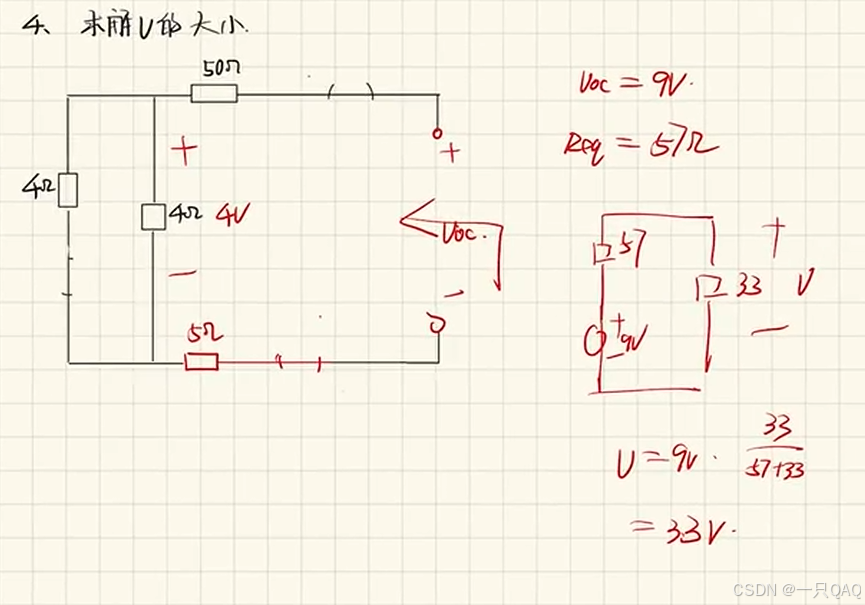 4、求解U的大小.
50Ω
4Ω
+
4Ω 4V
−
5Ω
+
Uoc.
−
Uoc = 9V.
Req = 57Ω
57
+
33 U
+
9V
−
−
U = 9V · 33/(57+33)
= 3.3V.
CSDN @一只QAQ